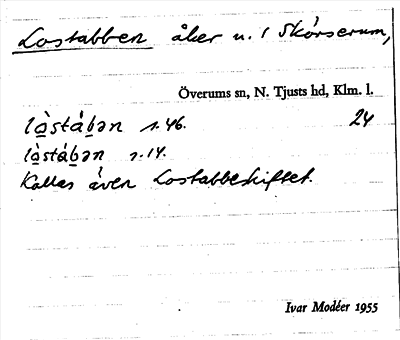 Lostabben åker u. / Skörserum,
Överums sn, N. Tjusts hd, Klm. l.
lo̱̊stáḇən s. 46. 24
lo̱̊stáḇən s. 14.
Kallas även Lostabbeskiftet.
Ivar Modéer 1955